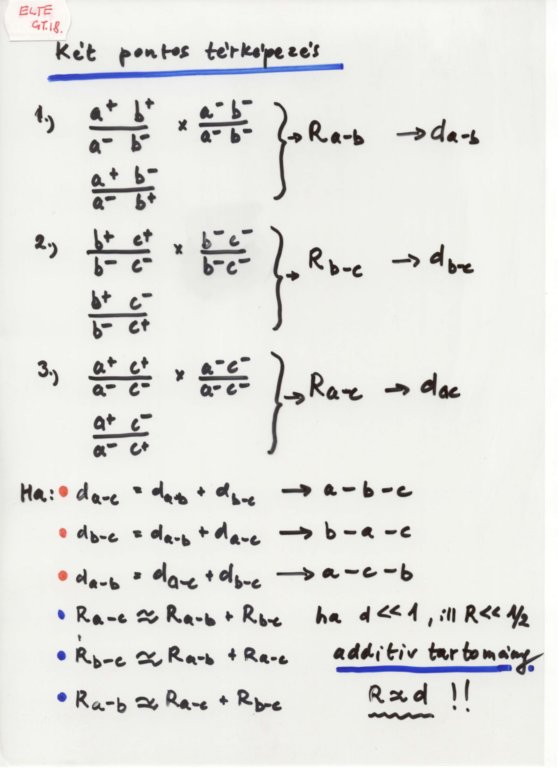 ELTE
GT.18.
Két pontos térképezés
1.) a⁺ b⁺ / a⁻ b⁻ × a⁻ b⁻ / a⁻ b⁻ } → R a-b → d a-b
a⁺ b⁻ / a⁻ b⁺
2.) b⁺ c⁺ / b⁻ c⁻ × b⁻ c⁻ / b⁻ c⁻ } → R b-c → d b-c
b⁺ c⁻ / b⁻ c⁺
3.) a⁺ c⁺ / a⁻ c⁻ × a⁻ c⁻ / a⁻ c⁻ } → R a-c → d ac
a⁺ c⁻ / a⁻ c⁺
Ha: • d a-c = d a-b + d b-c → a - b - c
• d b-c = d a-b + d a-c → b - a - c
• d a-b = d a-c + d b-c → a - c - b
• R a-c ≈ R a-b + R b-c ha d << 1, ill R << 1/2
• R b-c ≈ R a-b + R a-c additiv tartomány
• R a-b ≈ R a-c + R b-c R ≈ d !!